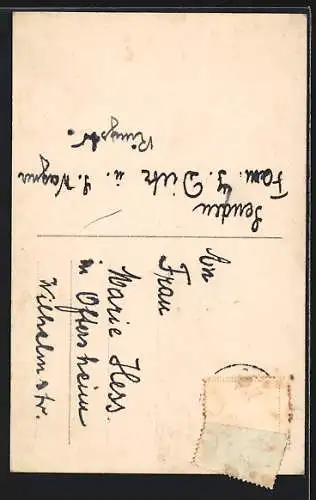 Senden
Fam. G. Dietz u. L. Wagner
Ringstr.
An
Frau
Marie Hess.
in Oftersheim
Wilhelmstr.